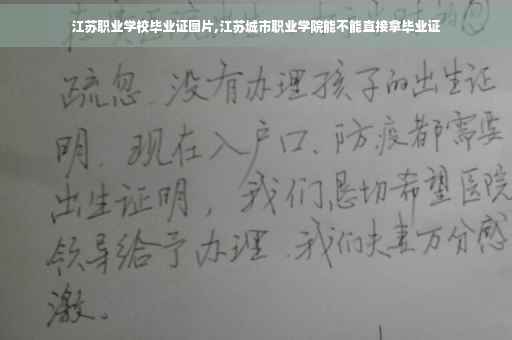 江苏职业学校毕业证图片,江苏城市职业学院能不能直接拿毕业证
疏忽、没有办理孩子的出生证
明。现在入户口、防疫都需要
出生证明，我们恳切希望医院
领导给予办理、我们夫妻万分感
激。